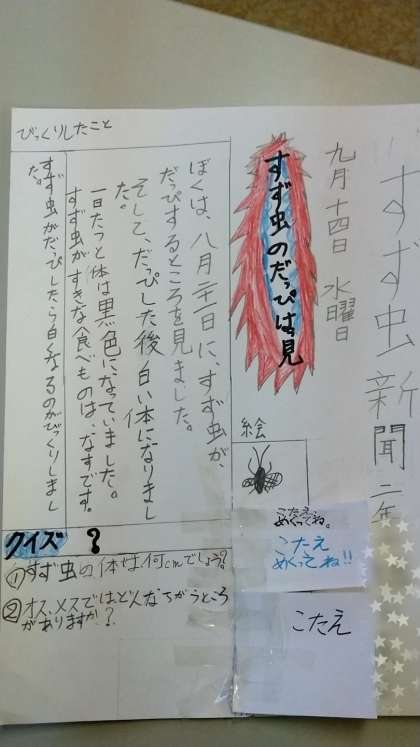 すず虫新聞 二年
九月十四日 水曜日
すず虫のだっぴは見
ぼくは、八月二十一日に、すず虫が、
だっぴするところを見ました。
そして、だっぴした後、白い体になりまし
た。
一日たつと体は黒色になっていました。
すず虫がすきな食べものは、なすです。
びっくりしたこと
すず虫がだっぴしたら白くなるのがびっくりしまし
た。
絵
クイズ ?
①すず虫の体は、何cmでしょう?
②オス、メスでは、どんなちがうところ
がありますか?
こたえ
めくってね。
こたえ
めくってね!!
こたえ